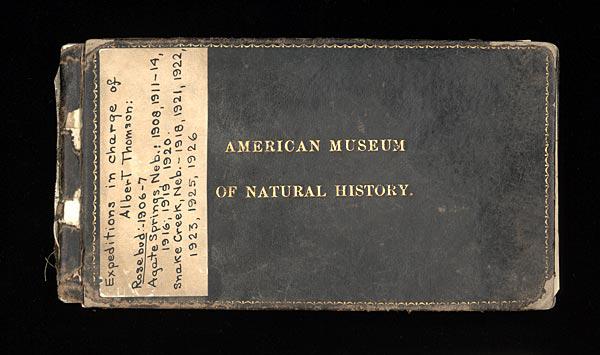 Expeditions in charge of
Albert Thomson:
Rosebud:-1906-7
Agate Springs, Neb.: 1908, 1911-14,
1916, 1919 1920.
Snake Creek, Neb.- 1918, 1921, 1922,
1923, 1925, 1926
AMERICAN MUSEUM
OF NATURAL HISTORY.